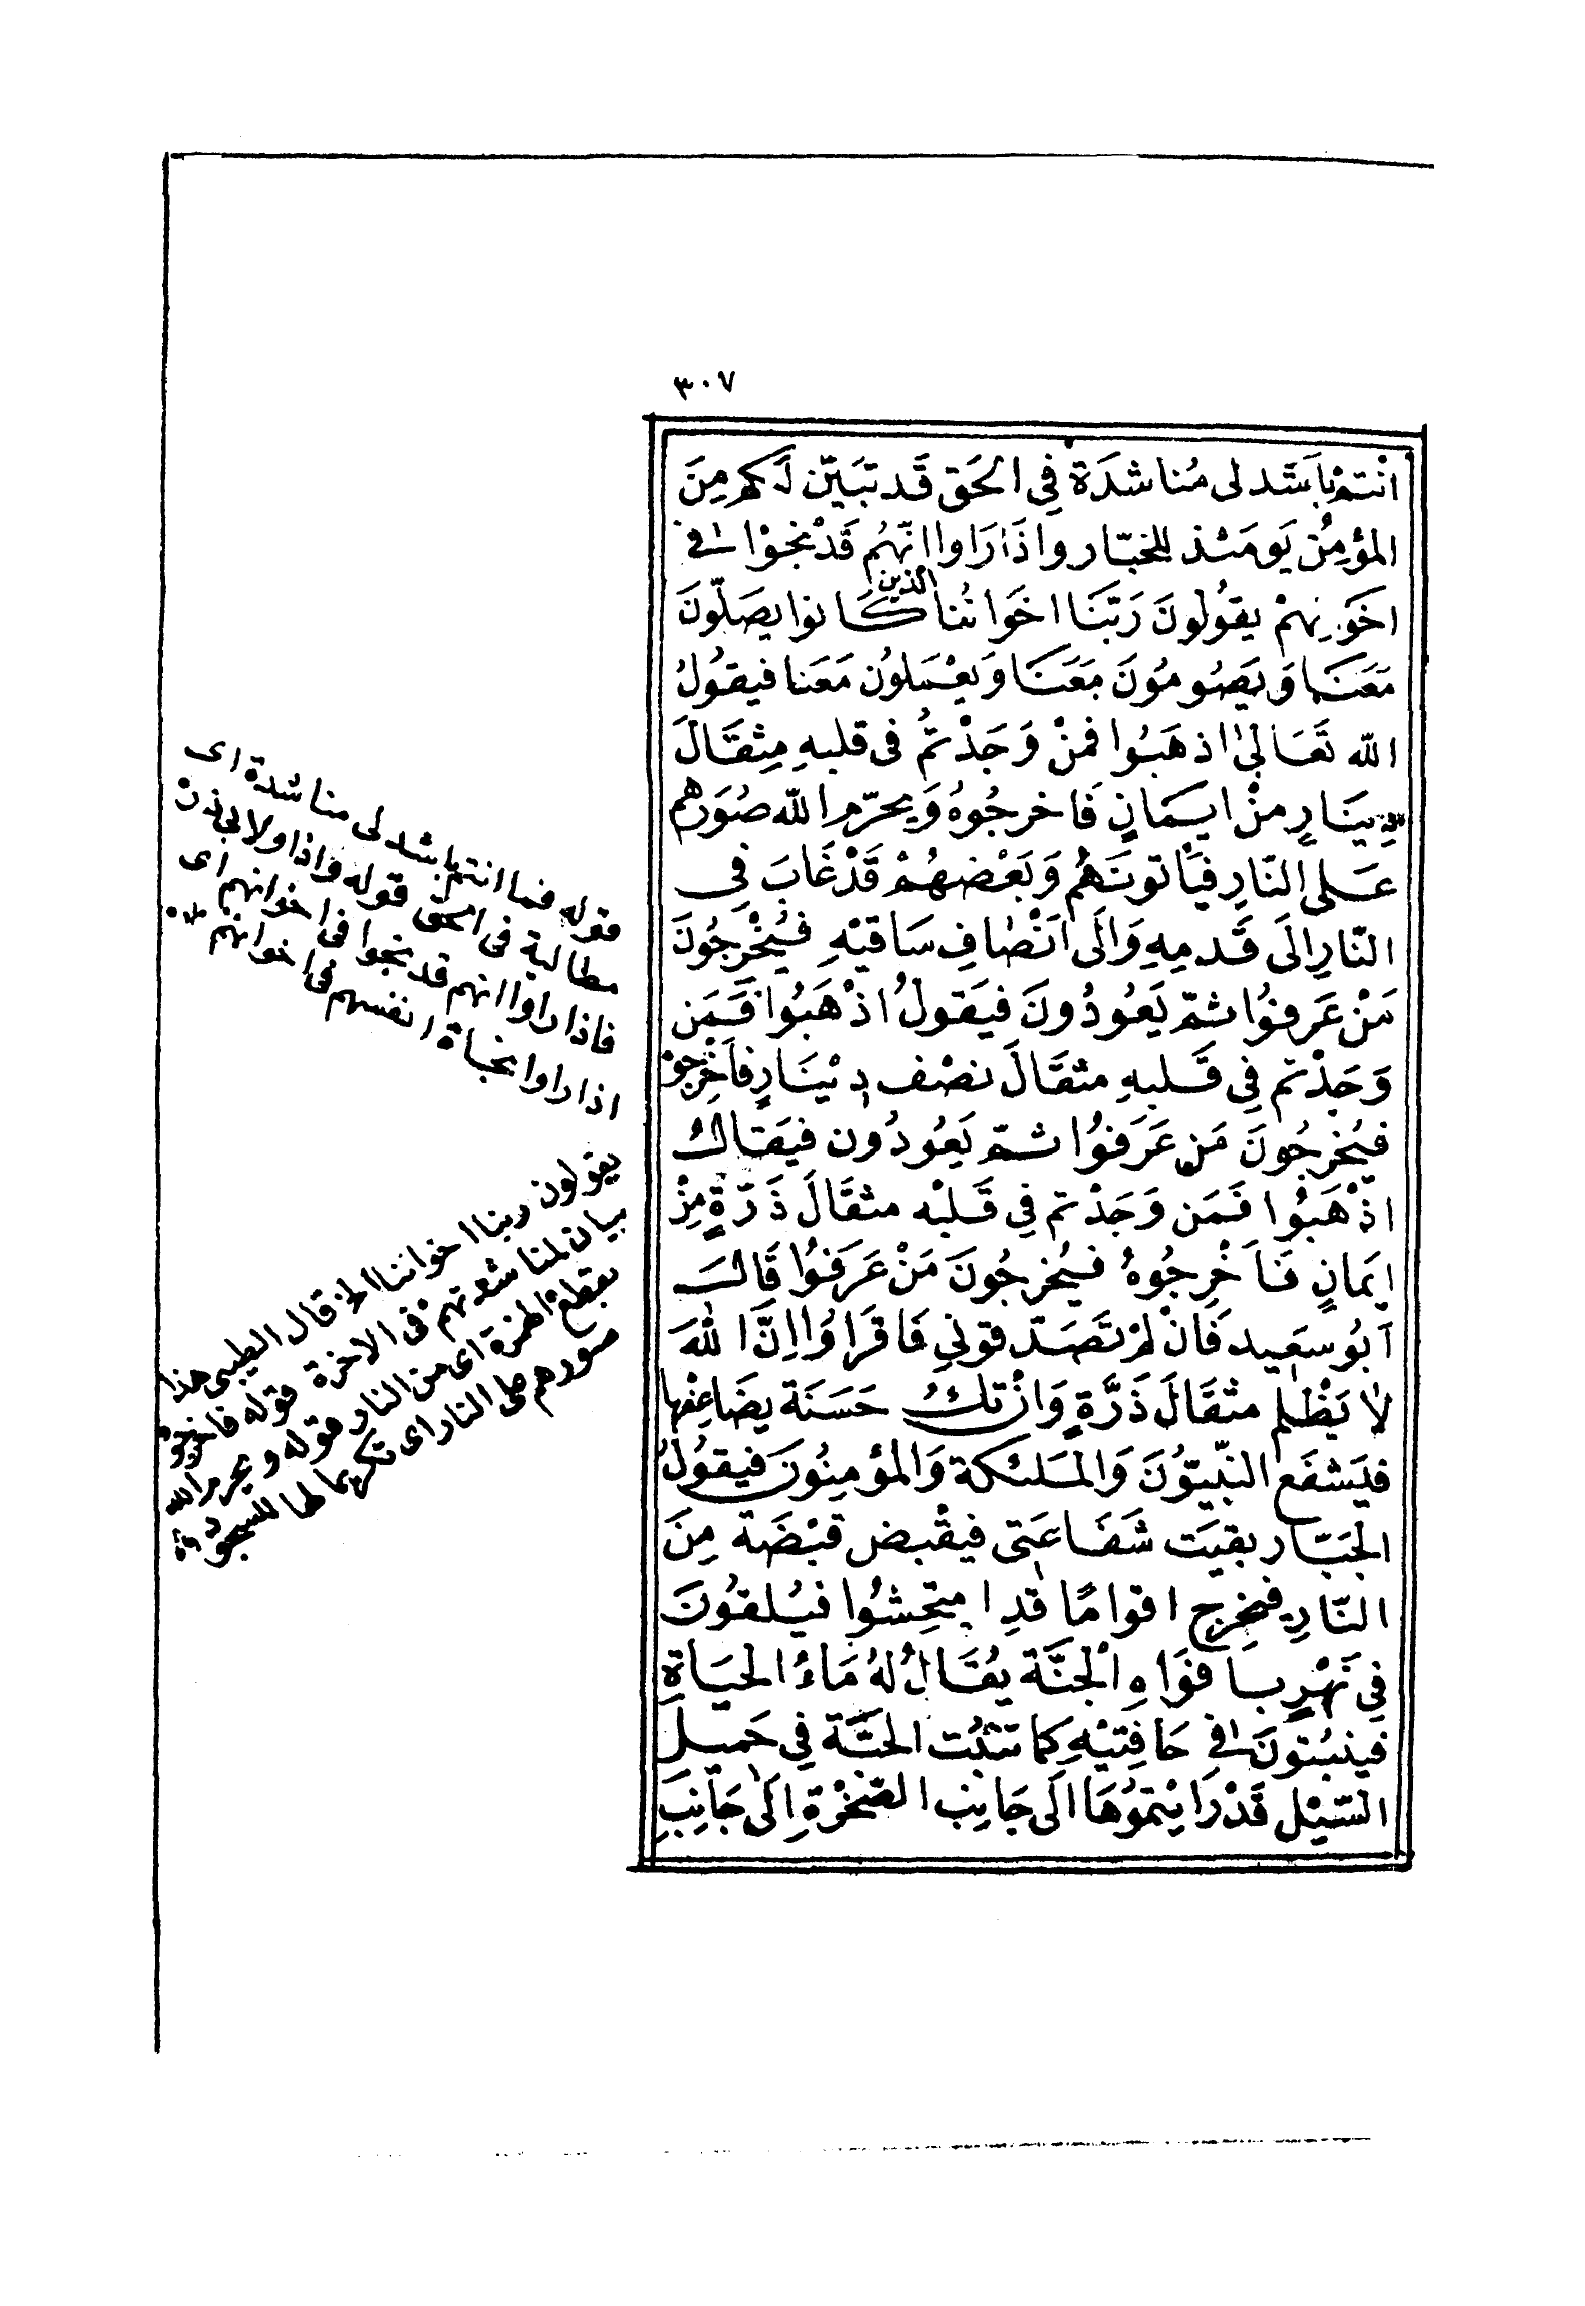 ٣٠٧
اَنْتم بِاَشَدَ لى مُناشَدَة فِى الحَق قَد تبَيّن لَكم مِنَ
المؤمِنُ يَومَئذ للجَبّار واذَا رَاوا انّهُم قَدْ نجَوْا فى
اخوَنِهِمْ يقوُلونَ رَبّنَا اخوَاننُا الذين كَانوا يصَلّونَ
مَعَنَا وَيَصُومُونَ مَعَنَا وَيعْمَلوُن مَعَنا فيقوُلُ
الله تعَالىٰ اذهَبوُا فمنْ وَجَدْتمُ فى قلبهِ مِثقَالَ
دِينَارٍ منْ ايمَانٍ فَاخرجُوهُ وَيحرّم الله صُوَرَهم
عَلى النّارِ فيَأتونَهُم وَبَعْضهُمْ قَدْ غَابَ فِى
النّارِ الَى قَدمِهِ وَالَى اَنْصَافِ سَاقيْهِ فيُخْرِجُونَ
مَنْ عَرَفوُا ثمّ يَعوُدُونَ فيَقولُ اذْهَبوُا فَمَن
وَجَدْتم فِى قَلبهِ مثقَالَ نصْف دِيْنَارٍ فاَخْرجوُ
فيُخرجُونَ مَن عَرَفوُا ثمّ يَعُودُون فيَقالُ
اذْهَبوُا فَمَن وَجَدْتم فِى قَلبْه مثقَالَ ذَرّةٍ مِنْ
اِيمَانٍ فَاَخْرِجُوهُ فيُخرجُونَ مَنْ عَرَفوُا قَالَ
اَبُو سعَيد فَانْ لمْ تصَدّقونِى فَاقرَاوُا اِنَّ اللهَ
لاٰ يَظْلم مثقَالَ ذَرَّةٍ وَانْ تكُ حَسَنَة يضَاعِفْها
فيَشفَع النبّيوُّنَ وَالمَلئكة وَالمؤمِنُونَ فيقوُلُ
الجَبّار بقيَت شَفَاعَتى فيقْبض قبْضَة مِنَ
النّارِ فيخرج اقوامًا قدِ امتحِشوُا فيُلقوُنَ
فِى نَهْرٍ بِافوَاهِ الْجَنَّة يُقَالُ لهُ مَاءُ الحيَاةِ
فينبُتونَ فى حَافِتيْهِ كما تنبُت الحبَّة فِى حَميل
السّيْل قَدْ رَايْتموُهَا الَى جَانِب الصّخرَةِ اِلَى جَانِبِ
قوله فما انتم باشد لى مناشدة اى
مطالبة فى الحق قوله واذا ولابى ذر
فاذا راوا انهم قد نجوا فى اخوانهم اى
اذا راوا نجاة انفسهم فى اخوانهم
يقولون ربنا اخواننا الخ قال الطيبى هذا
بيان لمناشدتهم فى الاخرة قوله فاخرجوه
بقطع الهمزة اى من النار قوله ويحرم الله
صورهم على النار اى تكريما لها للسجود